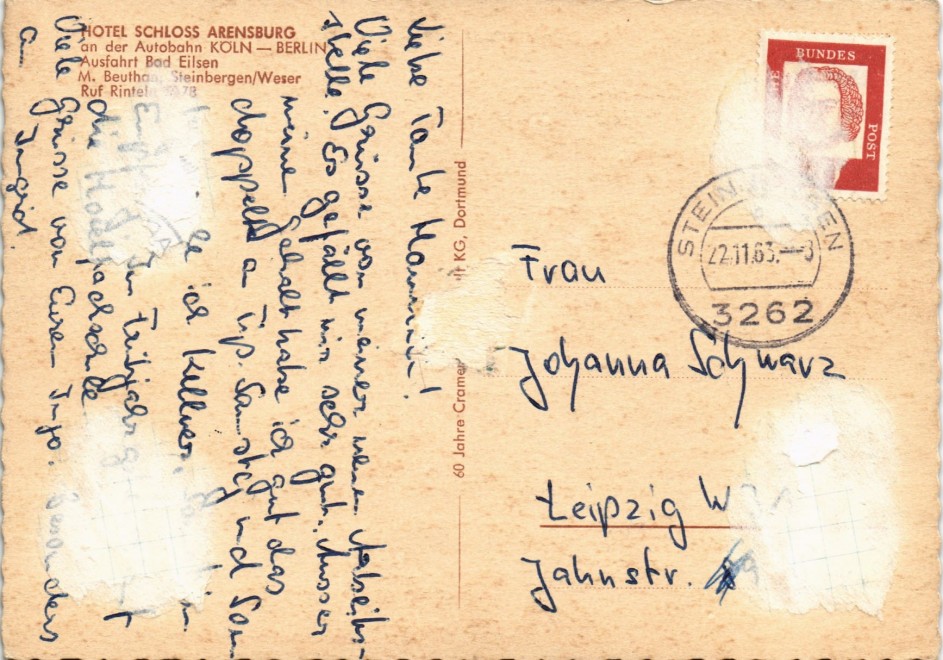 HOTEL SCHLOSS ARENSBURG
an der Autobahn KÖLN — BERLIN
Ausfahrt Bad Eilsen
M. Beuthan, Steinbergen/Weser
Ruf Rinteln 78
Liebe Tante Hannni!
Viele Grüsse von meiner neuen Arbeits-
stelle. Es gefällt mir sehr gut. Ausser
meine Gehalt habe ich gut das
doppelte an Tip. Samstag und Son
ich Kellner.
Im Frühjahr
die Hotelfachschule
Viele Grüsse von Euren Ingo. Besonders
an Ingrid!
60 Jahre Cramer KG, Dortmund
BUNDES
POST
STEIN EN
22.11.63.—8
3262
Frau
Johanna Schwarz
Leipzig W
Jahnstr.